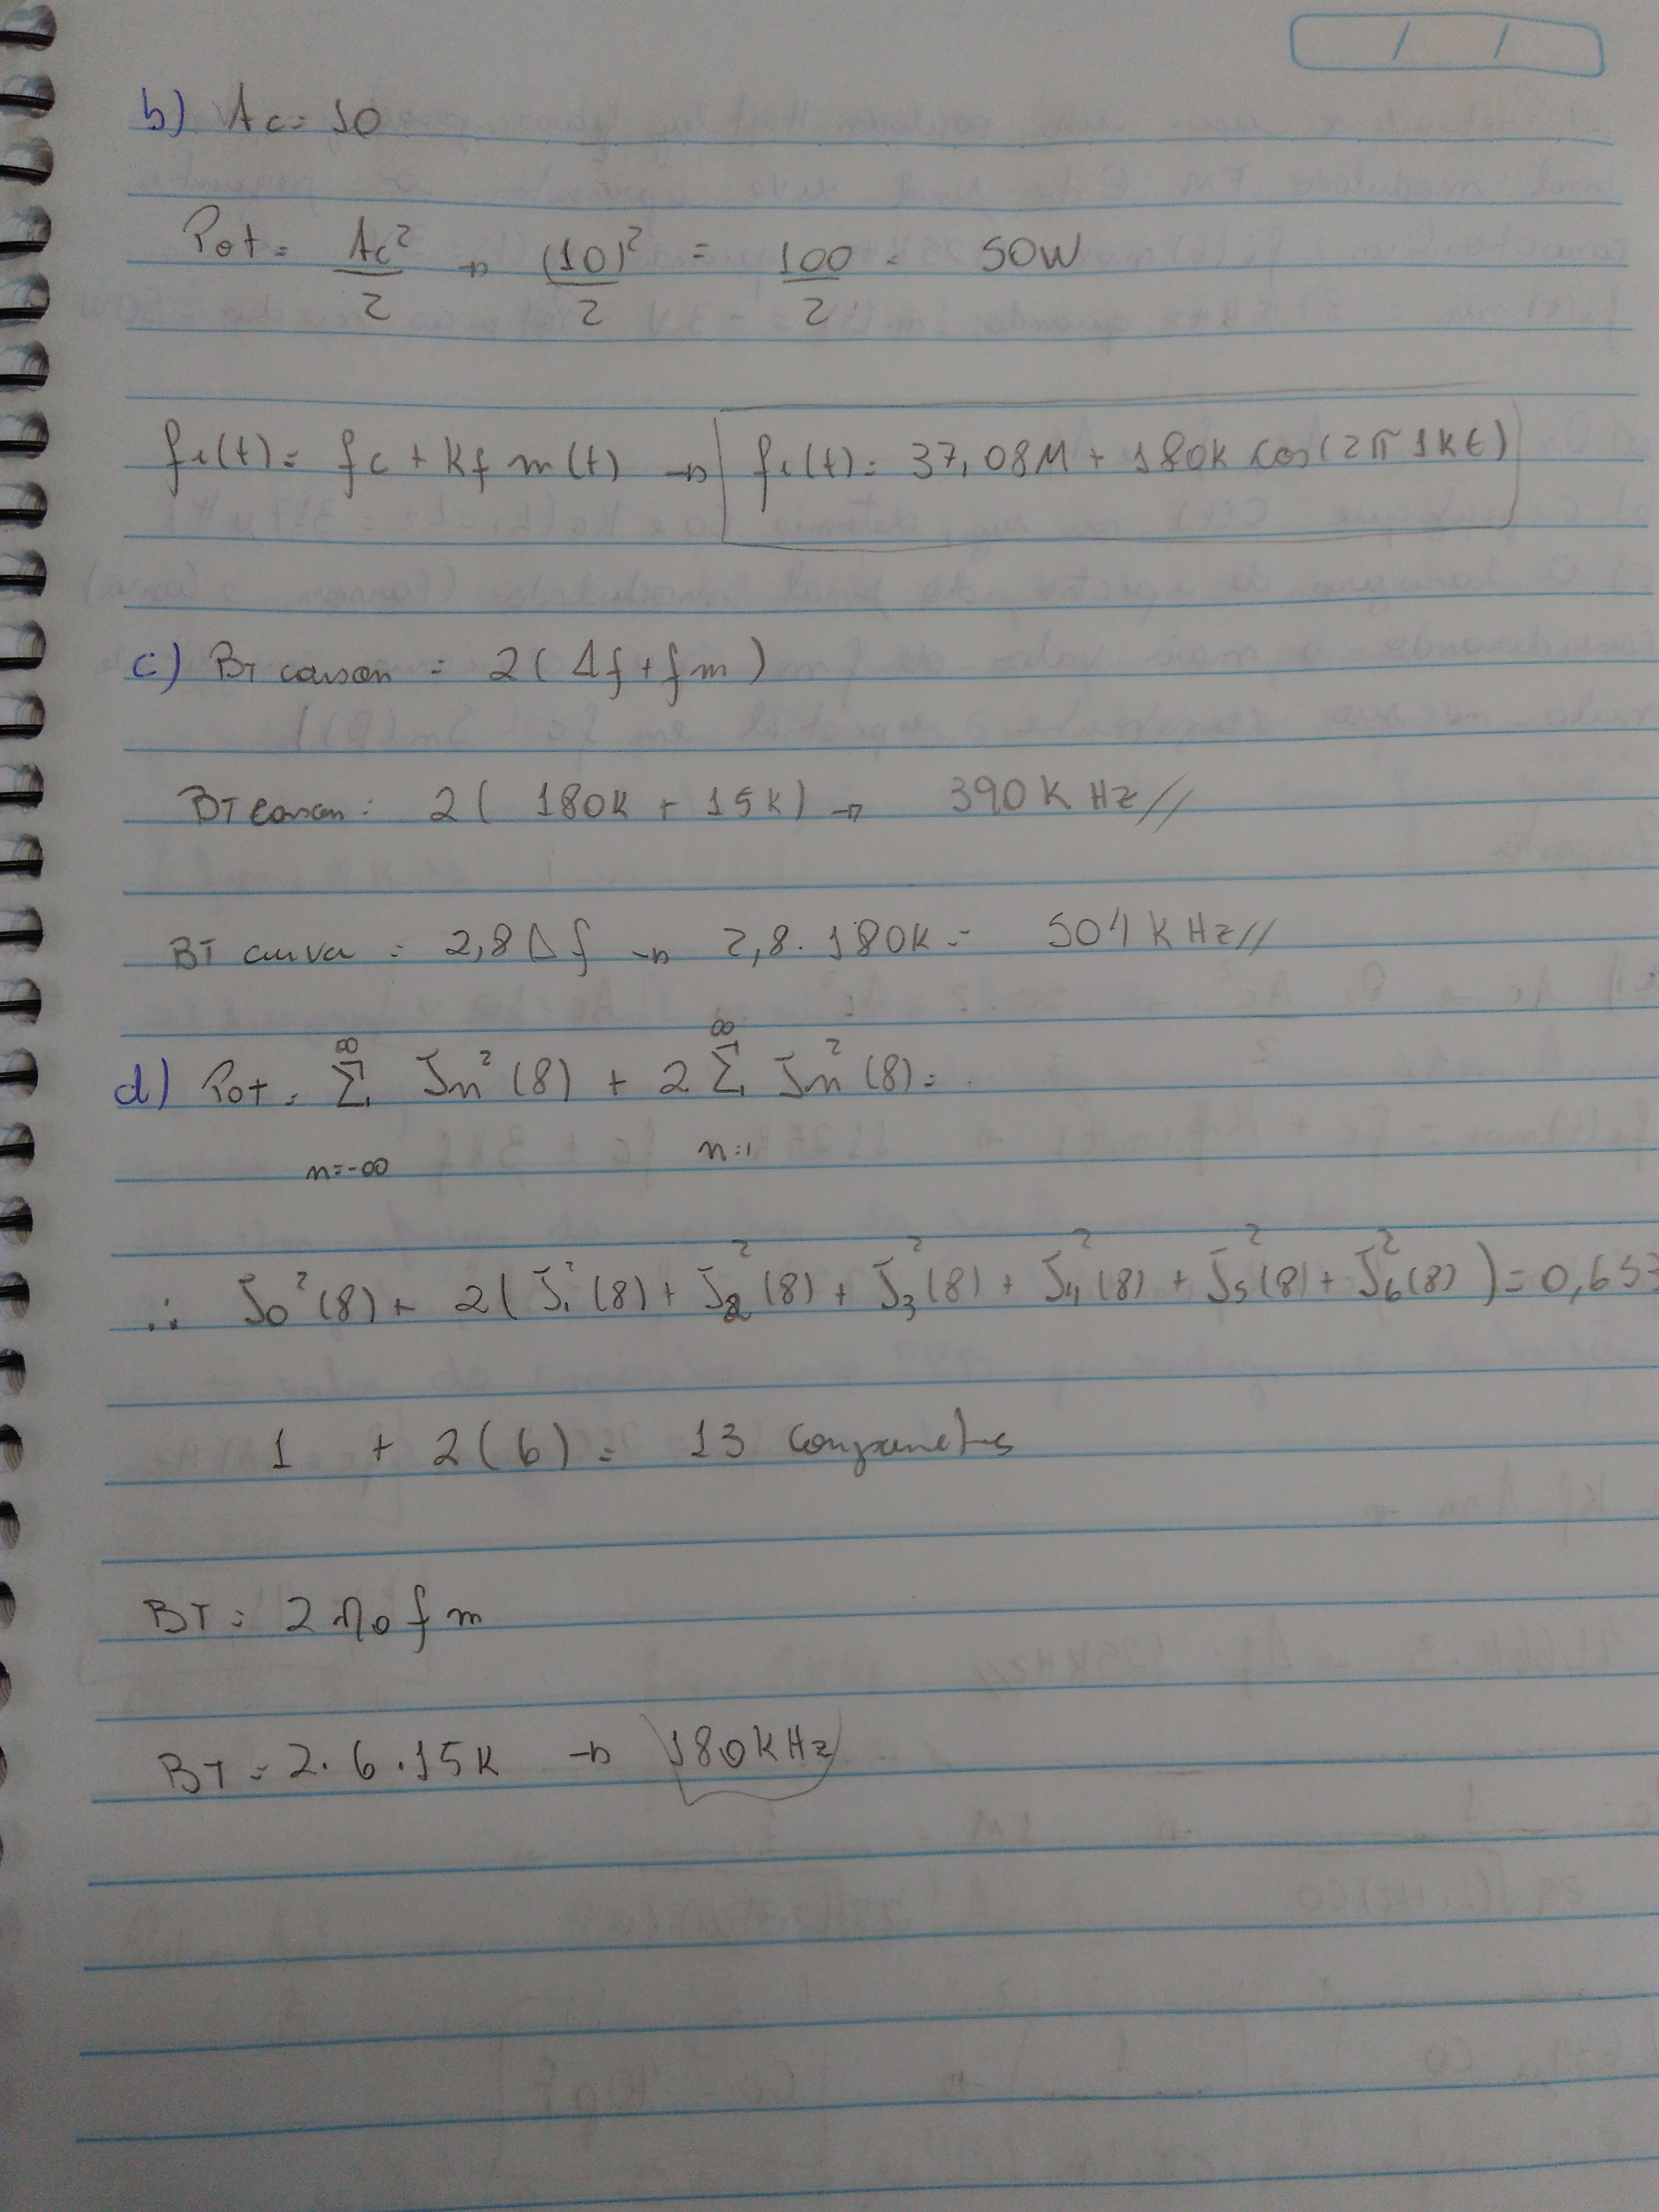 b) Ac = 10
Pot = Ac²/2 → (10)²/2 = 100/2 = 50W
fi(t) = fc + kf m(t) → fi(t) = 37,08M + 180k cos(2π 1kt)
c) BT carson = 2(Δf + fm)
BT carson = 2(180k + 15k) → 390k Hz//
BT curva = 2,8Δf → 2,8 . 180k = 504k Hz//
d) Pot = ∞ Σ n=-∞ Jn²(8) + 2 ∞ Σ n=1 Jn²(8) =
∴ J0²(8) + 2(J1²(8) + J2²(8) + J3²(8) + J4²(8) + J5²(8) + J6²(8)) = 0,653
1 + 2(6) = 13 componentes
BT = 2 n0 fm
BT = 2.6.15k → 180kHz